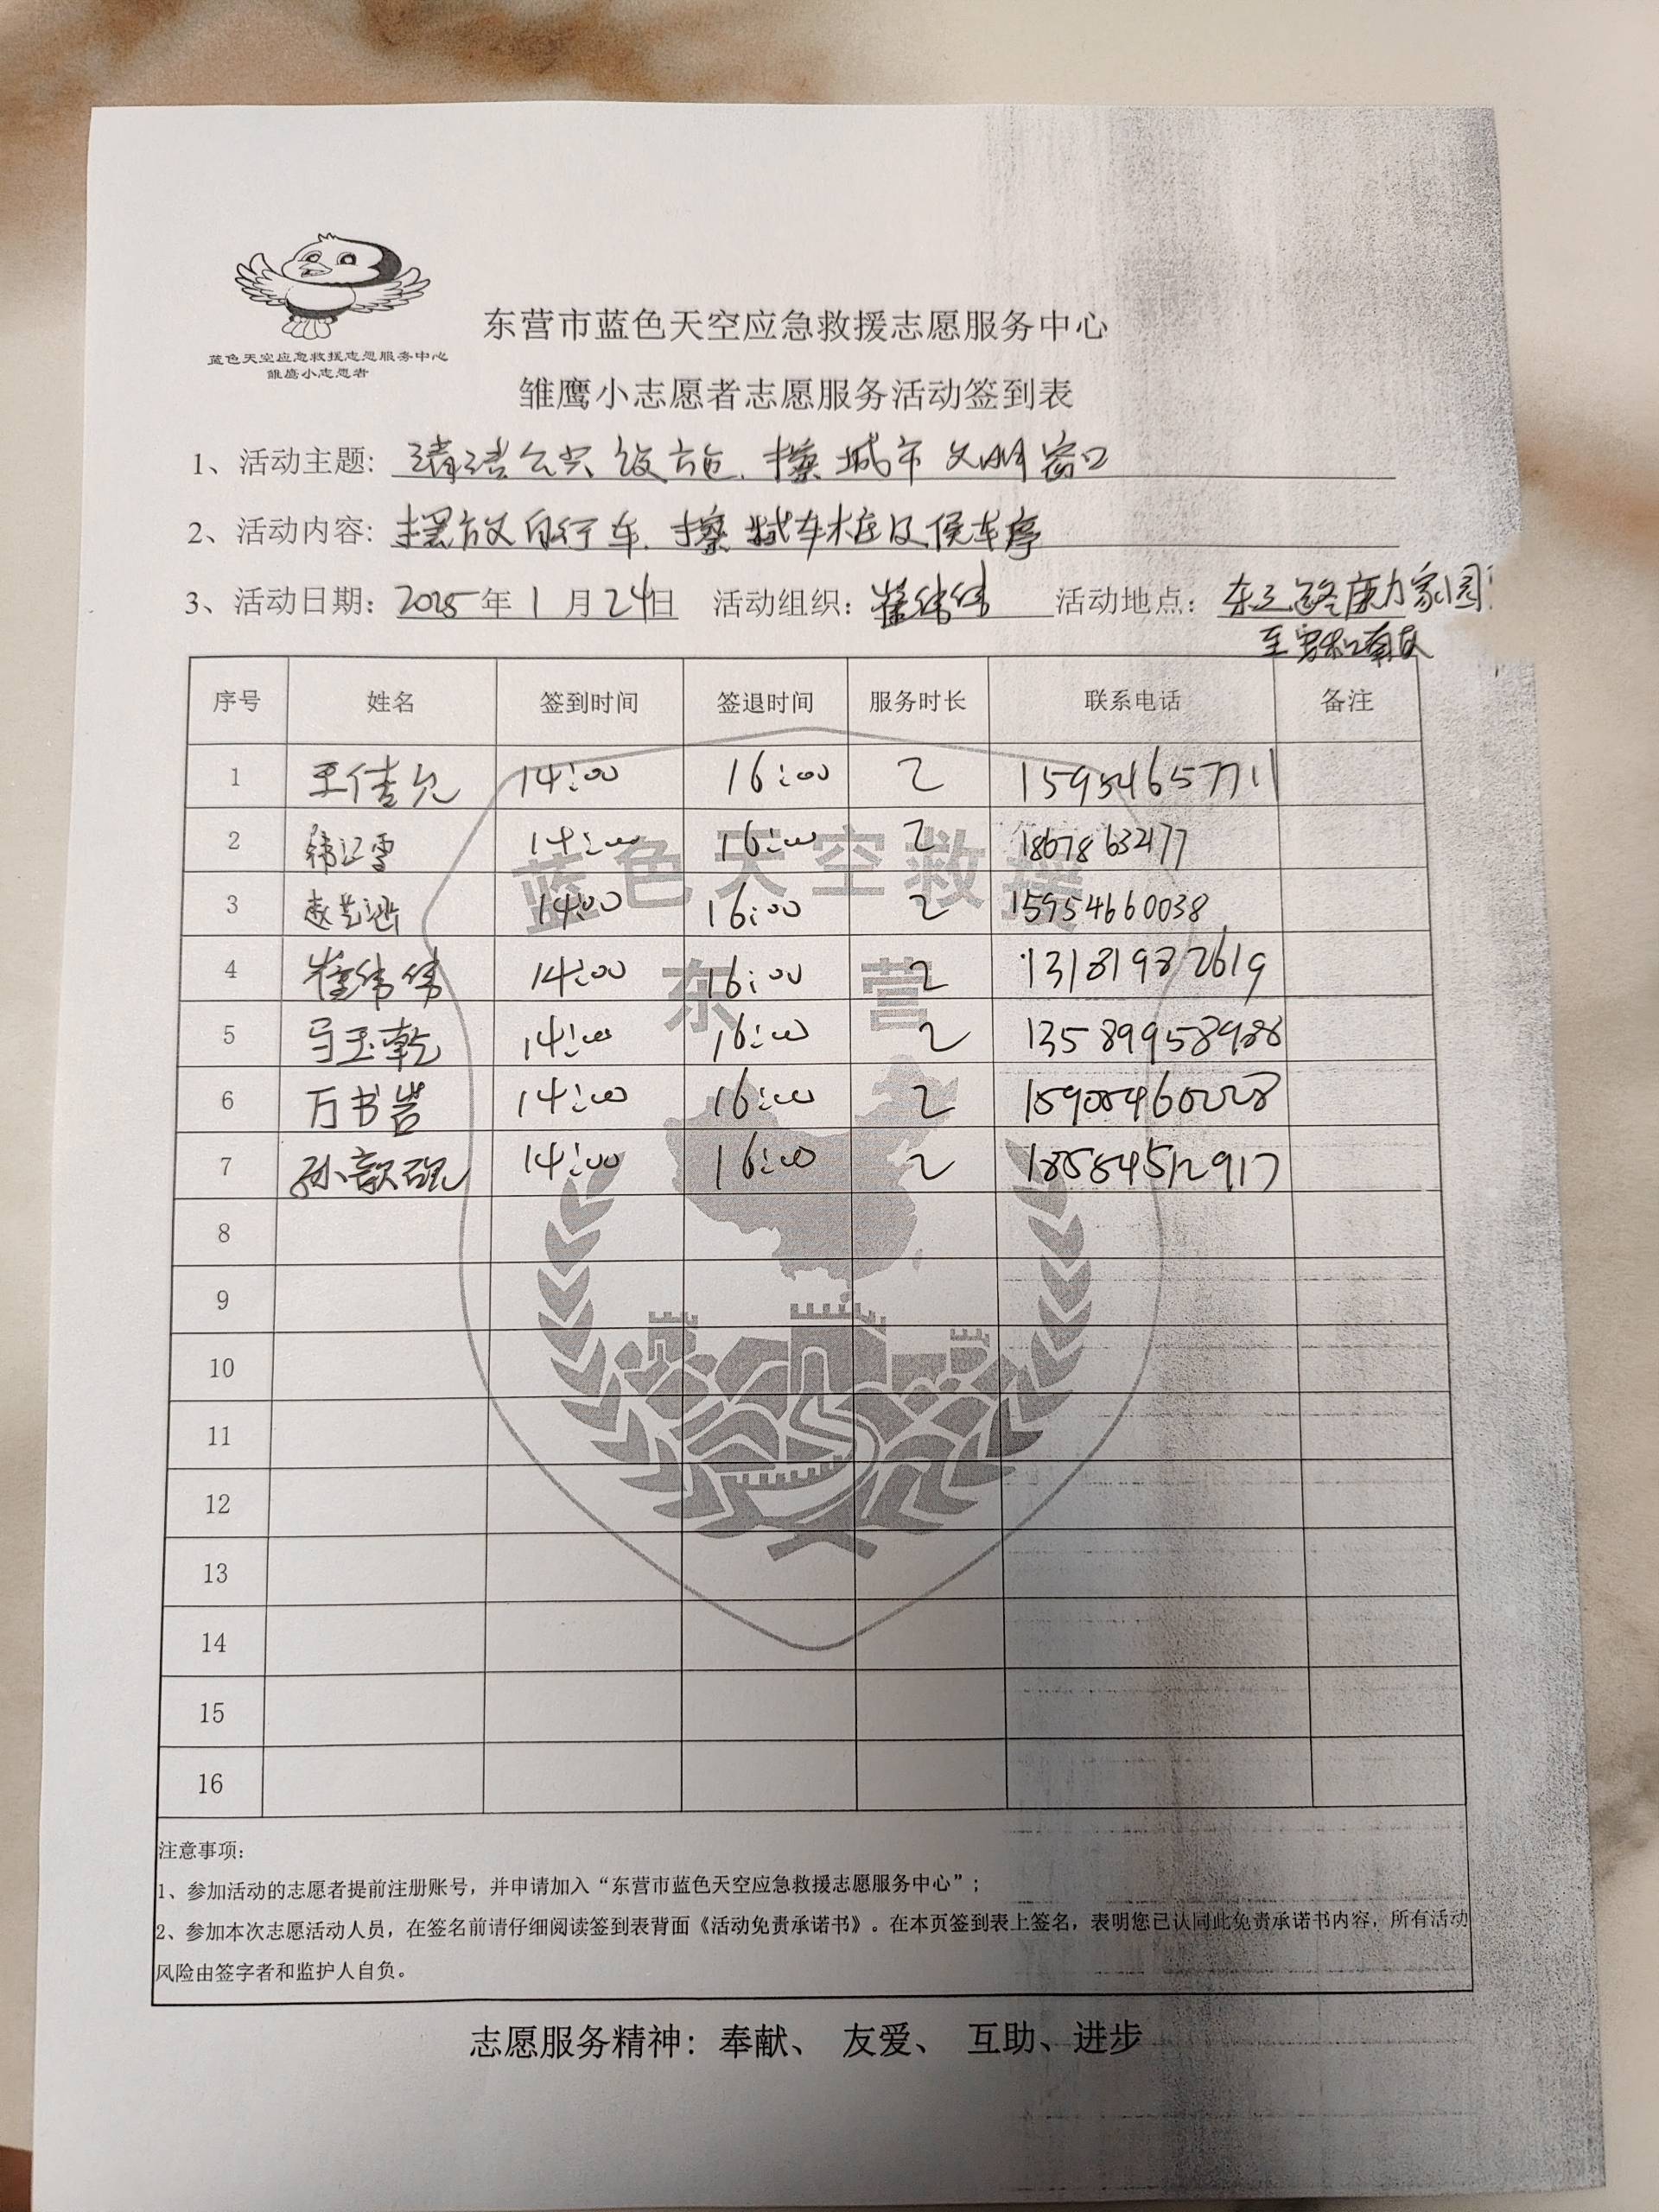 蓝色天空应急救援志愿服务中心
雏鹰小志愿者
东营市蓝色天空应急救援志愿服务中心
雏鹰小志愿者志愿服务活动签到表
1、活动主题: 清洁公共设施、擦城市文明窗口
2、活动内容: 摆放自行车、擦拭车桩及候车亭
3、活动日期: 2025年1月24日 活动组织: 崔伟伟 活动地点: 东三路康力家园
序号 姓名 签到时间 签退时间 服务时长 联系电话 备注
1 王佳允 14:00 16:00 2 15954657711
2 韩江雪 14:00 16:00 2 18678632177
3 赵 14:00 16:00 2 15954660038
4 崔伟伟 14:00 16:00 2 13181982619
5 马玉乾 14:00 16:00 2 13589958988
6 万书岩 14:00 16:00 2
7 孙歆砚 14:00 16:00 2
8
9
10
11
12
13
14
15
16
蓝色天空救援
东营
注意事项:
1、参加活动的志愿者提前注册账号，并申请加入“东营市蓝色天空应急救援志愿服务中心”;
2、参加本次志愿活动人员，在签名前请仔细阅读签到表背面《活动免责承诺书》。在本页签到表上签名，表明您已认同此免责承诺书内容，所有活动
风险由签字者和监护人自负。
志愿服务精神: 奉献、 友爱、 互助、进步